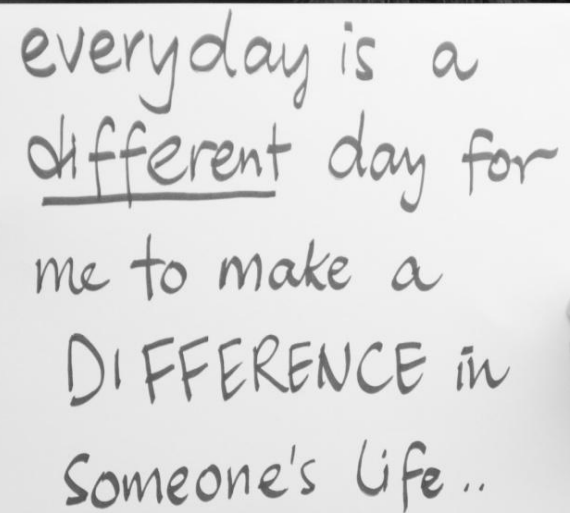 everyday is a
different day for
me to make a
DIFFERENCE in
someone's life..